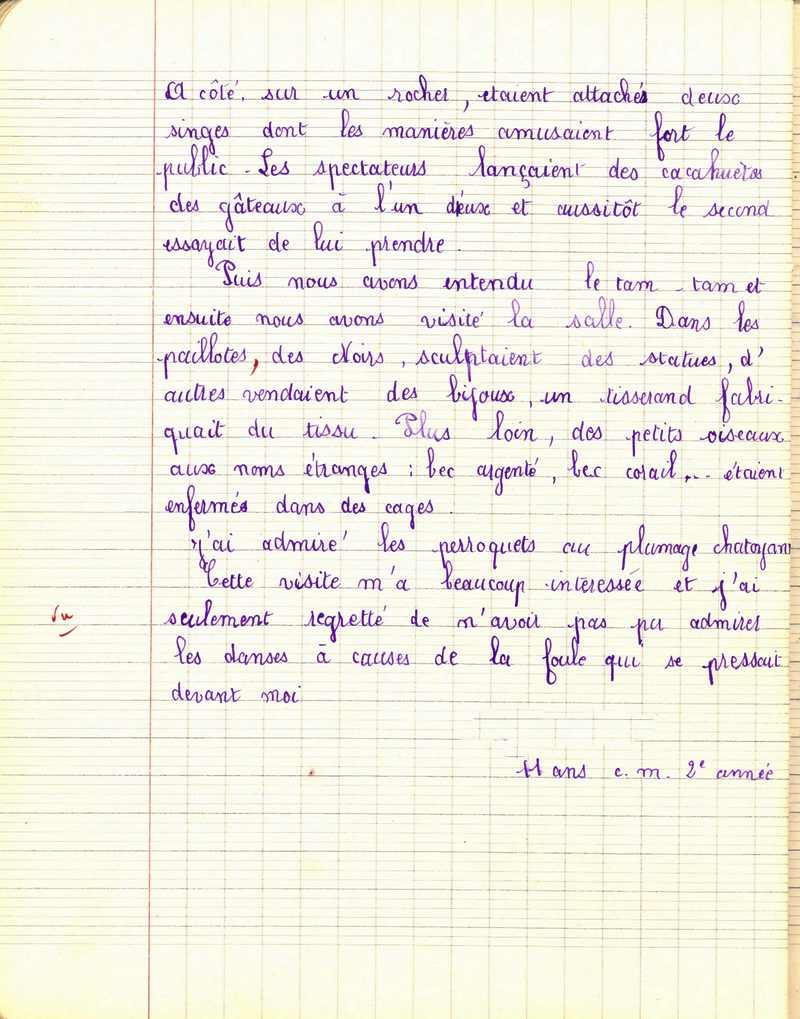 A côté, sur un rocher, étaient attachés deux
singes dont les manières amusaient fort le
public. Les spectateurs lançaient des cacahuètes
des gâteaux à l'un d'eux et aussitôt le second
essayait de lui prendre.
Puis nous avons entendu le tam-tam et
ensuite nous avons visité la salle. Dans les
paillotes, des Noirs, sculptaient des statues, d'
autres vendaient des bijoux, un tisserand fabri-
quait du tissu. Plus loin, des petits oiseaux
aux noms étranges : bec argenté, bec corail,... étaient
enfermés dans des cages.
J'ai admiré les perroquets au plumage chatoyant
Cette visite m'a beaucoup intéressée et j'ai
Vu
seulement regretté de n'avoir pas pu admirer
les danses à causes de la foule qui se pressait
devant moi
11 ans c. m. 2e année